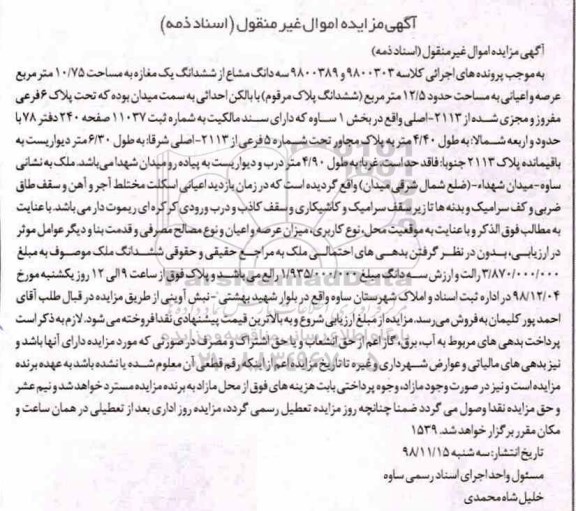 آگهی مزایده اموال غیر منقول (اسناد ذمه)
آگهی مزایده اموال غیر منقول (اسناد ذمه)
به موجب پرونده های اجرائی کلاسه ۹۸۰۰۳۰۳ و ۹۸۰۰۳۸۹ سه دانگ مشاع از ششدانگ یک مغازه به مساحت ۱۰/۷۵ متر مربع
عرصه و اعیانی به مساحت حدود ۱۲/۵ متر مربع (ششدانگ پلاک مرقوم) با بالکن احداثی به سمت میدان بوده که تحت پلاک ۶ فرعی
مفروز و مجزی شده از ۲۱۱۳-اصلی واقع در بخش ۱ ساوه که دارای سند مالکیت به شماره ثبت ۱۱۰۳۷ صفحه ۲۴۰ دفتر ۷۸ با
حدود و اربعه شمالا: به طول ۴/۴۰ متر به پلاک مجاور تحت شماره ۵ فرعی از ۲۱۱۳-اصلی شرقا: به طول ۶/۳۰ متر دیواریست به
باقیمانده پلاک ۲۱۱۳ جنوبا: فاقد حد است غربا: به طول ۴/۹۰ متر درب و دیواریست به پیاده رو میدان شهدا می باشد. ملک به نشانی
ساوه-میدان شهداء-(ضلع شمال شرقی میدان) واقع گردیده است که در زمان بازدید اعیانی اسکلت مختلط آجر و آهن و سقف طاق
ضربی و کف سرامیک و بدنه ها تا زیر سقف سرامیک و کاشیکاری و سقف کاذب و درب ورودی کرکره ای ریموت دار می باشد. با عنایت
به مطالب فوق الذکر و با عنایت به موقعیت محل، نوع کاربری، میزان عرصه و اعیان و نوع مصالح مصرفی و قدمت بنا و دیگر عوامل موثر
در ارزیابی، بدون در نظر گرفتن بدهی های احتمالی ملک به مراجع حقیقی و حقوقی ششدانگ ملک موصوف به مبلغ
۳/۸۷۰/۰۰۰/۰۰۰ رالت و ارزش سه دانگ مبلغ ۱/۹۳۵/۰۰۰/۰۰۰ رالع می باشد و پلاک فوق از ساعت ۹ الی ۱۲ روز یکشنبه مورخ
۹۸/۱۲/۰۴ در اداره ثبت اسناد و املاک شهرستان ساوه واقع در بلوار شهید بهشتی - نبش آوینی از طریق مزایده در قبال طلب آقای
احمد پور کلیمان به فروش می رسد. مزایده از مبلغ ارزیابی شروع و به بالاترین قیمت پیشنهادی نقدا فروخته می شود. لازم به ذکر است
پرداخت بدهی های مربوط به آب، برق، گاز اعم از حق انشعاب و یا حق اشتراک و مصرف در صورتی که مورد مزایده دارای آنها باشد و
نیز بدهی های مالیاتی و عوارض شهرداری و غیره تا تاریخ مزایده اعم از اینکه رقم قطعی آن معلوم شده یا نشده باشد به عهده برنده
مزایده است و نیز در صورت وجود مازاد، وجوه پرداختی بابت هزینه های فوق از محل مازاد به برنده مزایده مسترد خواهد شد و نیم عشر
و حق مزایده نقدا وصول می گردد ضمنا چنانچه روز مزایده تعطیل رسمی گردد، مزایده روز اداری بعد از تعطیلی در همان ساعت و
مکان مقرر برگزار خواهد شد. ۱۵۳۹
تاریخ انتشار: سه شنبه ۹۸/۱۱/۱۵
مسئول واحد اجرای اسناد رسمی ساوه
خلیل شاه محمدی